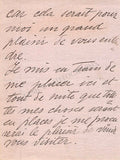 car cela serait pour
moi un grand
plaisir de vous enten
dre.
Je suis en train de
me placer ici et
tout de suite que
mes choses seront
en places je me propose
serai le plaisir de
vous visiter.